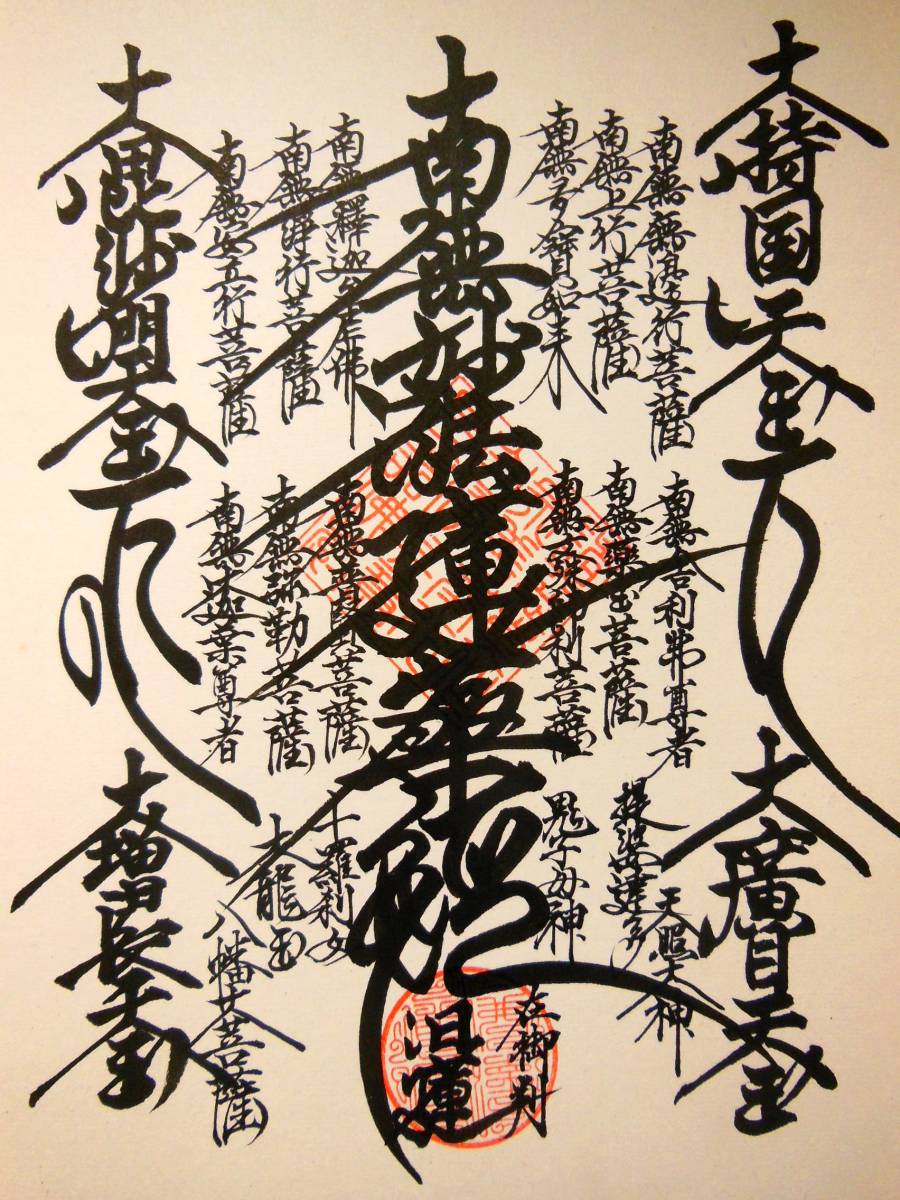 南無妙法蓮華経
日蓮
在御判
大持国天王
大廣目天王
南無無邊行菩薩
南無上行菩薩
南無多寳如来
南無釋迦牟尼佛
南無浄行菩薩
南無安立行菩薩
大毘沙門天王
南無舎利弗尊者
南無薬王菩薩
南無文殊師利菩薩
南無普賢菩薩
南無弥勒菩薩
南無迦葉尊者
天照大神
提婆達多
鬼子母神
十羅刹女
大龍王
八幡大菩薩
大増長天王